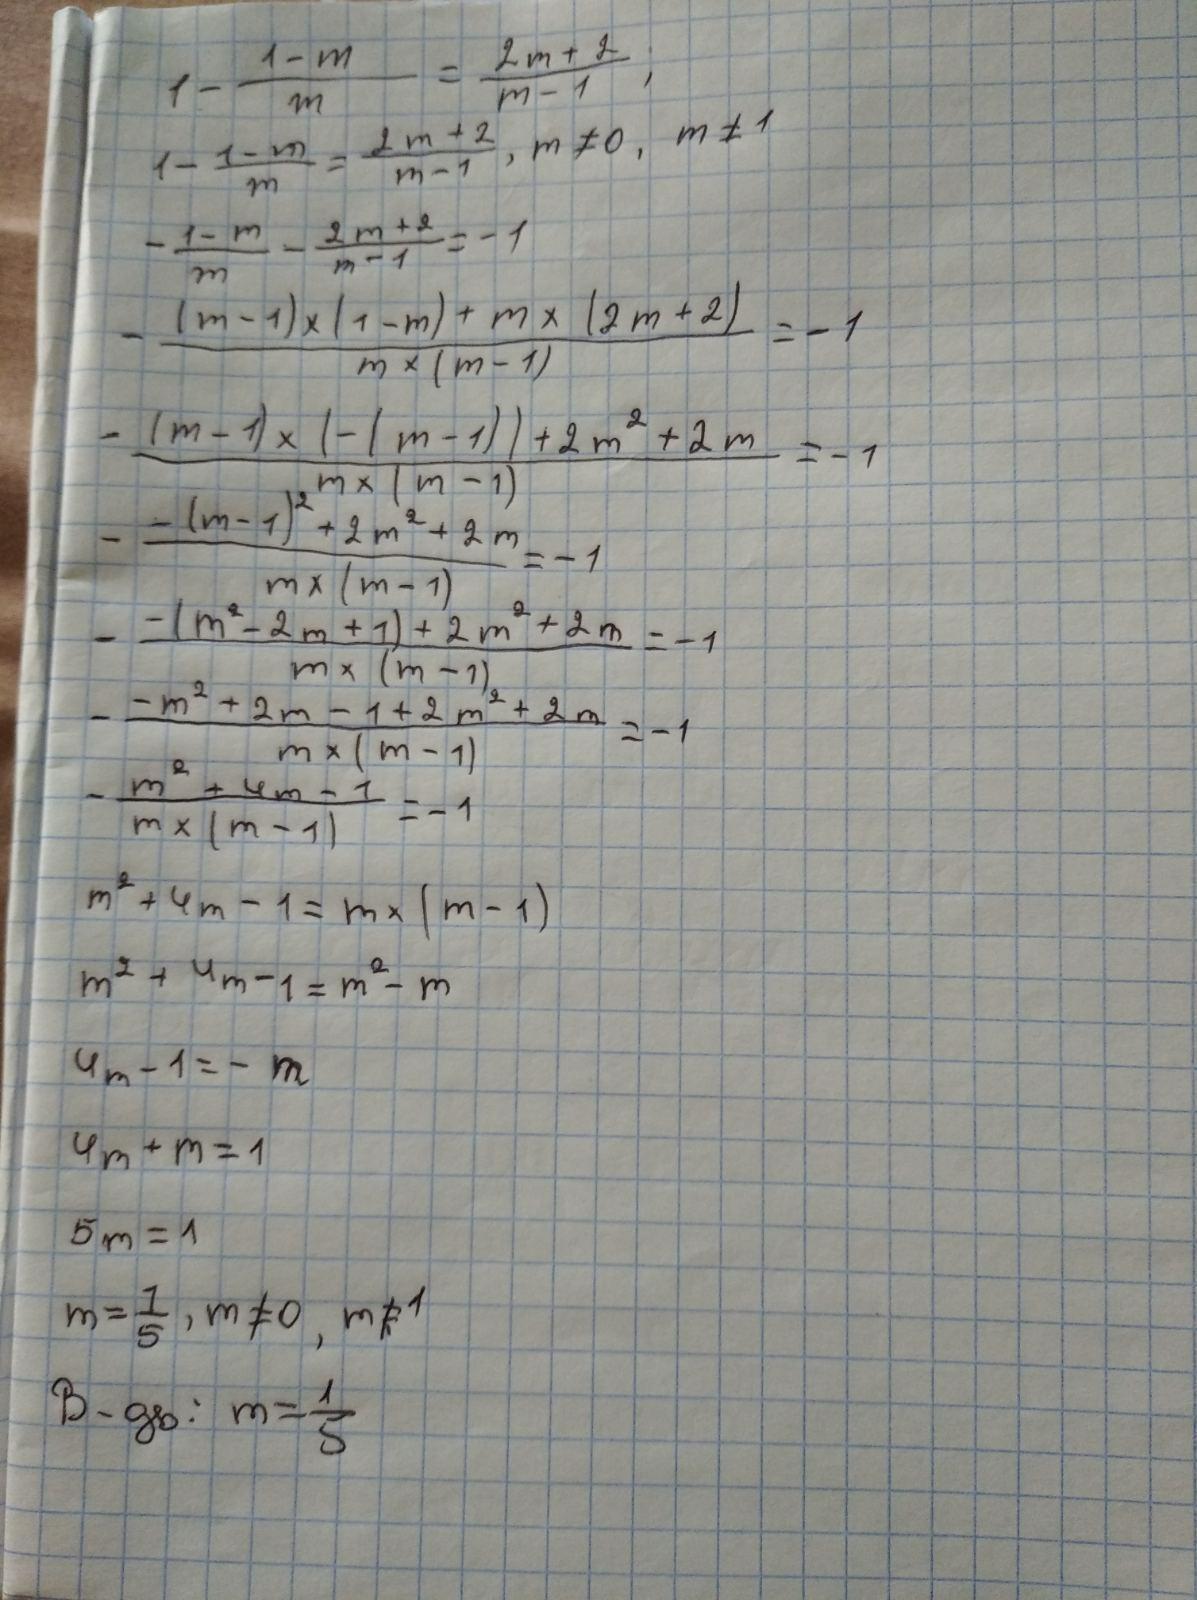 1 - (1 - m)/m = (2m + 2)/(m - 1) ;
1 - (1 - m)/m = (2m + 2)/(m - 1) , m ≠ 0 , m ≠ 1
- (1 - m)/m - (2m + 2)/(m - 1) = -1
- ((m - 1) × (1 - m) + m × (2m + 2))/(m × (m - 1)) = -1
- ((m - 1) × (-(m - 1)) + 2m² + 2m)/(m × (m - 1)) = -1
- (-(m - 1)² + 2m² + 2m)/(m × (m - 1)) = -1
- (-(m² - 2m + 1) + 2m² + 2m)/(m × (m - 1)) = -1
- (-m² + 2m - 1 + 2m² + 2m)/(m × (m - 1)) = -1
- (m² + 4m - 1)/(m × (m - 1)) = -1
m² + 4m - 1 = m × (m - 1)
m² + 4m - 1 = m² - m
4m - 1 = - m
4m + m = 1
5m = 1
m = 1/5 , m ≠ 0 , m ≠ 1
В-дь: m = 1/5